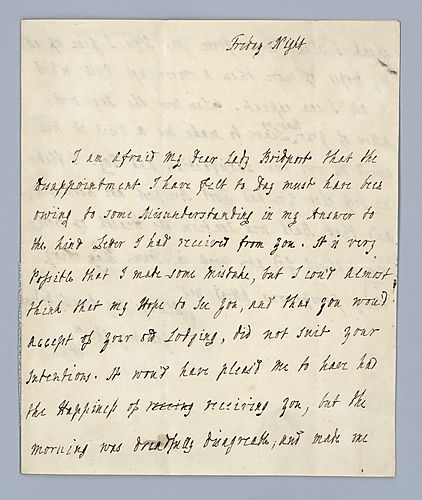 Friday Night
I am afraid my Dear Lady Bridport that the
Disappointment I have felt to Day must have been
owing to some Misunderstanding in my Answer to
the kind Letter I had received from you. It is very
Possible that I made some mistake, but I cou'd almost
think that my Hope to See you, and that you wou'd
accept of your old Lodging, did not suit your
Intentions. It wou'd have pleas'd me to have had
the Happiness of receiving you, but the
morning was dreadfully disagreable, and made me